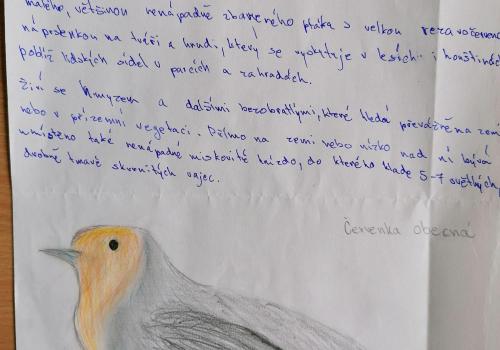 malého, většinou nenápadně zbarveného ptáka s velkou rezavočervenou
náprsenkou na tváři a hrudi, který se vyskytuje v lesích i houštinách
poblíž lidských sídel v parcích a zahradách.
Živí se hmyzem a dalšími bezobratlými, které hledá převážně na zemi
nebo v přízemní vegetaci. Přímo na zemi nebo nízko nad ní bývá
umístěno také nenápadné miskovité hnízdo, do kterého klade 5-7 světlých,
drobně tmavě skvrnitých vajec.
Červenka obecná